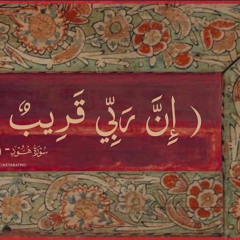 ( إِنَّ رَبِّي قَرِيبٌ
سُورَةُ هُود -